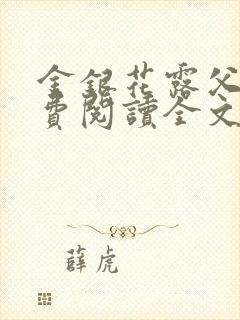 金銀花露父
費閱讀全文
薛虎